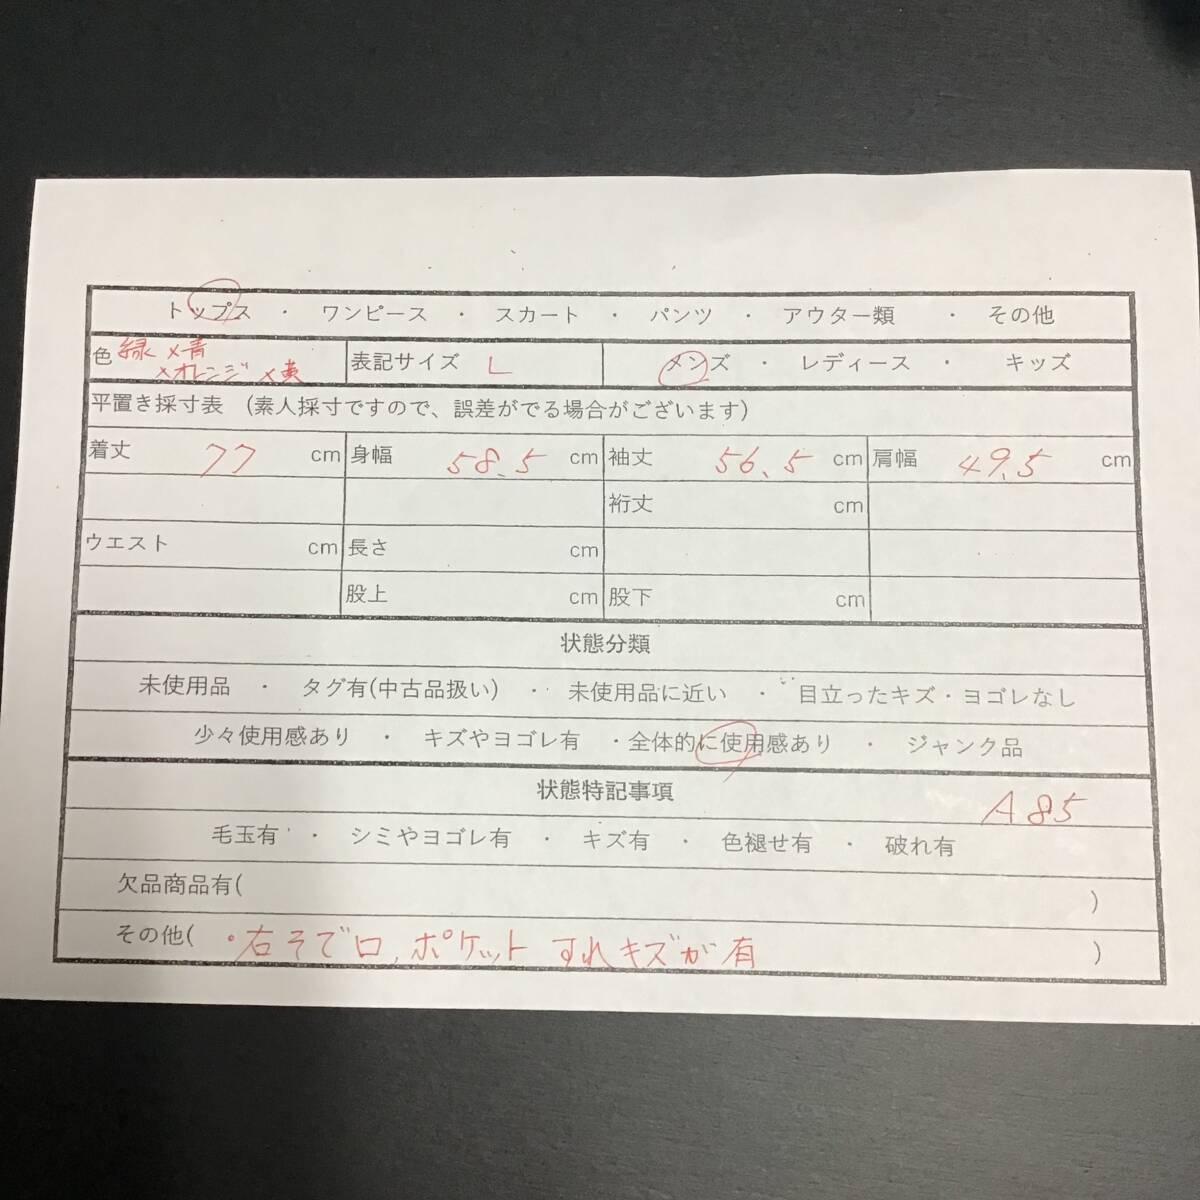 トップス ・ ワンピース ・ スカート ・ パンツ ・ アウター類 ・ その他
色 緑×青
×オレンジ×黄
表記サイズ L
メンズ ・ レディース ・ キッズ
平置き採寸表 (素人採寸ですので、誤差がでる場合がございます)
着丈 77 cm 身幅 58.5 cm 袖丈 56.5 cm 肩幅 49.5 cm
裄丈 cm
ウエスト cm 長さ cm
股上 cm 股下 cm
状態分類
未使用品 ・ タグ有(中古品扱い) ・ 未使用品に近い ・ 目立ったキズ・ヨゴレなし
少々使用感あり ・ キズやヨゴレ有 ・全体的に使用感あり ・ ジャンク品
状態特記事項 A85
毛玉有 ・ シミやヨゴレ有 ・ キズ有 ・ 色褪せ有 ・ 破れ有
欠品商品有( )
その他( ・右そで口,ポケット すれキズが有 )